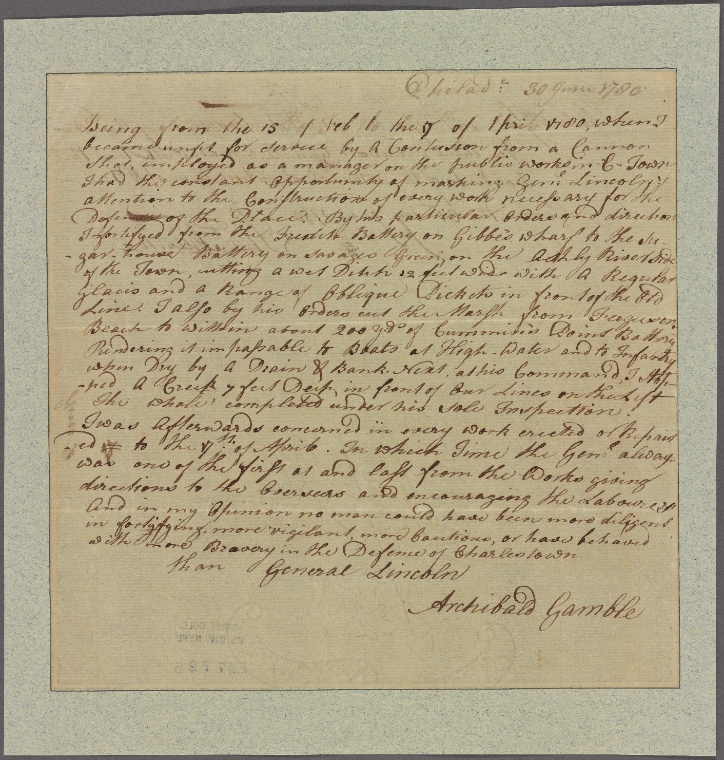 Philada: 30 June 1780
Being from the 15 of Feb to the 7 of April 1780, when I
became unfit for Service by A Contusion from a Cannon
Shot employed as a manager on the public works in C-Town
I had the constant Opportunity of marking Genl Lincoln's
attention to the Construction of every work necessary for the
Defence of the Place: By his particular Orders and direction
I fortifyed from the French Battery on Gibbis wharf to the Su-
-gar-house Battery on Savages Green, on the Ashly River Side
of the Town, cutting a wet Ditch 12 feet wide with A Regular
Glacis and a Range of Oblique Pickets in front of the Old
Line. I also by his Orders cut the Marsh from Ferguson's
Beach to within about 200 yds of Cummin's Point Battery
Rendering it impassable to Boats at High-Water and to Infantry
when Dry by A Drain & Bank. Next, at his Command, I Stop-
-ped A Creek 7 feet Deep, in front of Our Lines on the Left
The whole completed under his Sole Inspection.
I was Afterwards concerned in every work erected or Repair
ed to the 7th of April. In which Time the Genl always
was one of the first at and last from the Works giving
directions to the Overseers and encouraging the Labourers
And in my Opinion no man could have been more diligent
in fortifying, more vigilant, more Cautious, or have behaved
with more Bravery in the Defence of Charlestown
than General Lincoln
Archibald Gamble